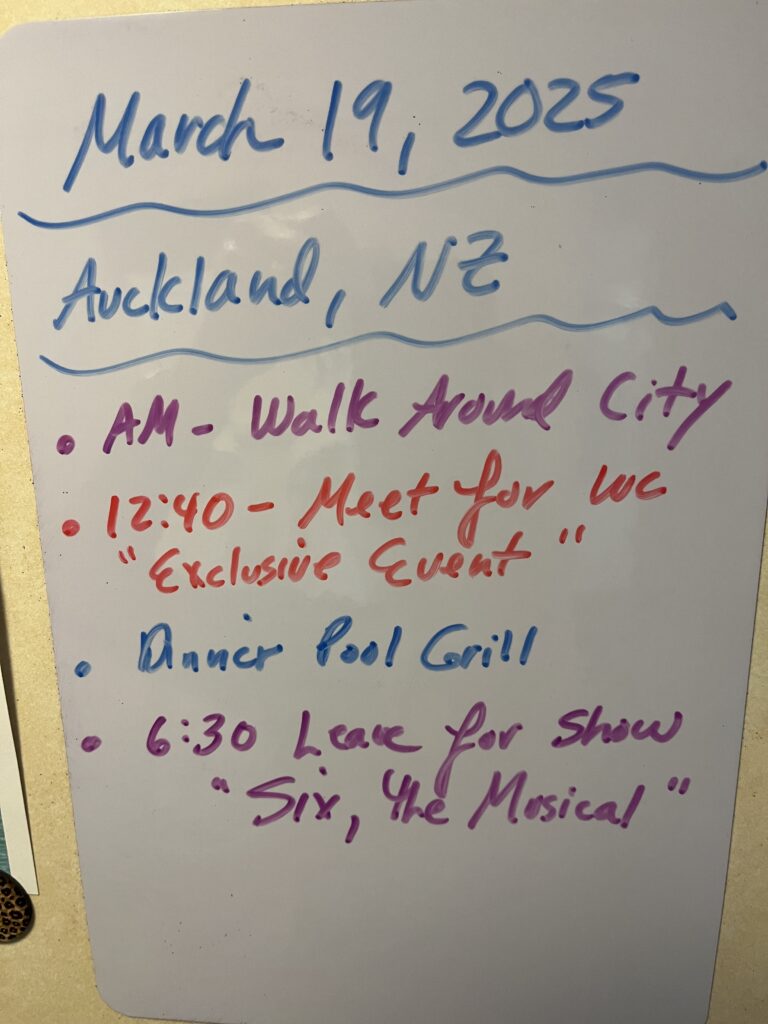 March 19, 2025
Auckland, NZ
• AM - Walk Around City
• 12:40 - Meet for WC
"Exclusive Event"
• Dinner Pool Grill
• 6:30 Leave for Show
"Six, The Musical"